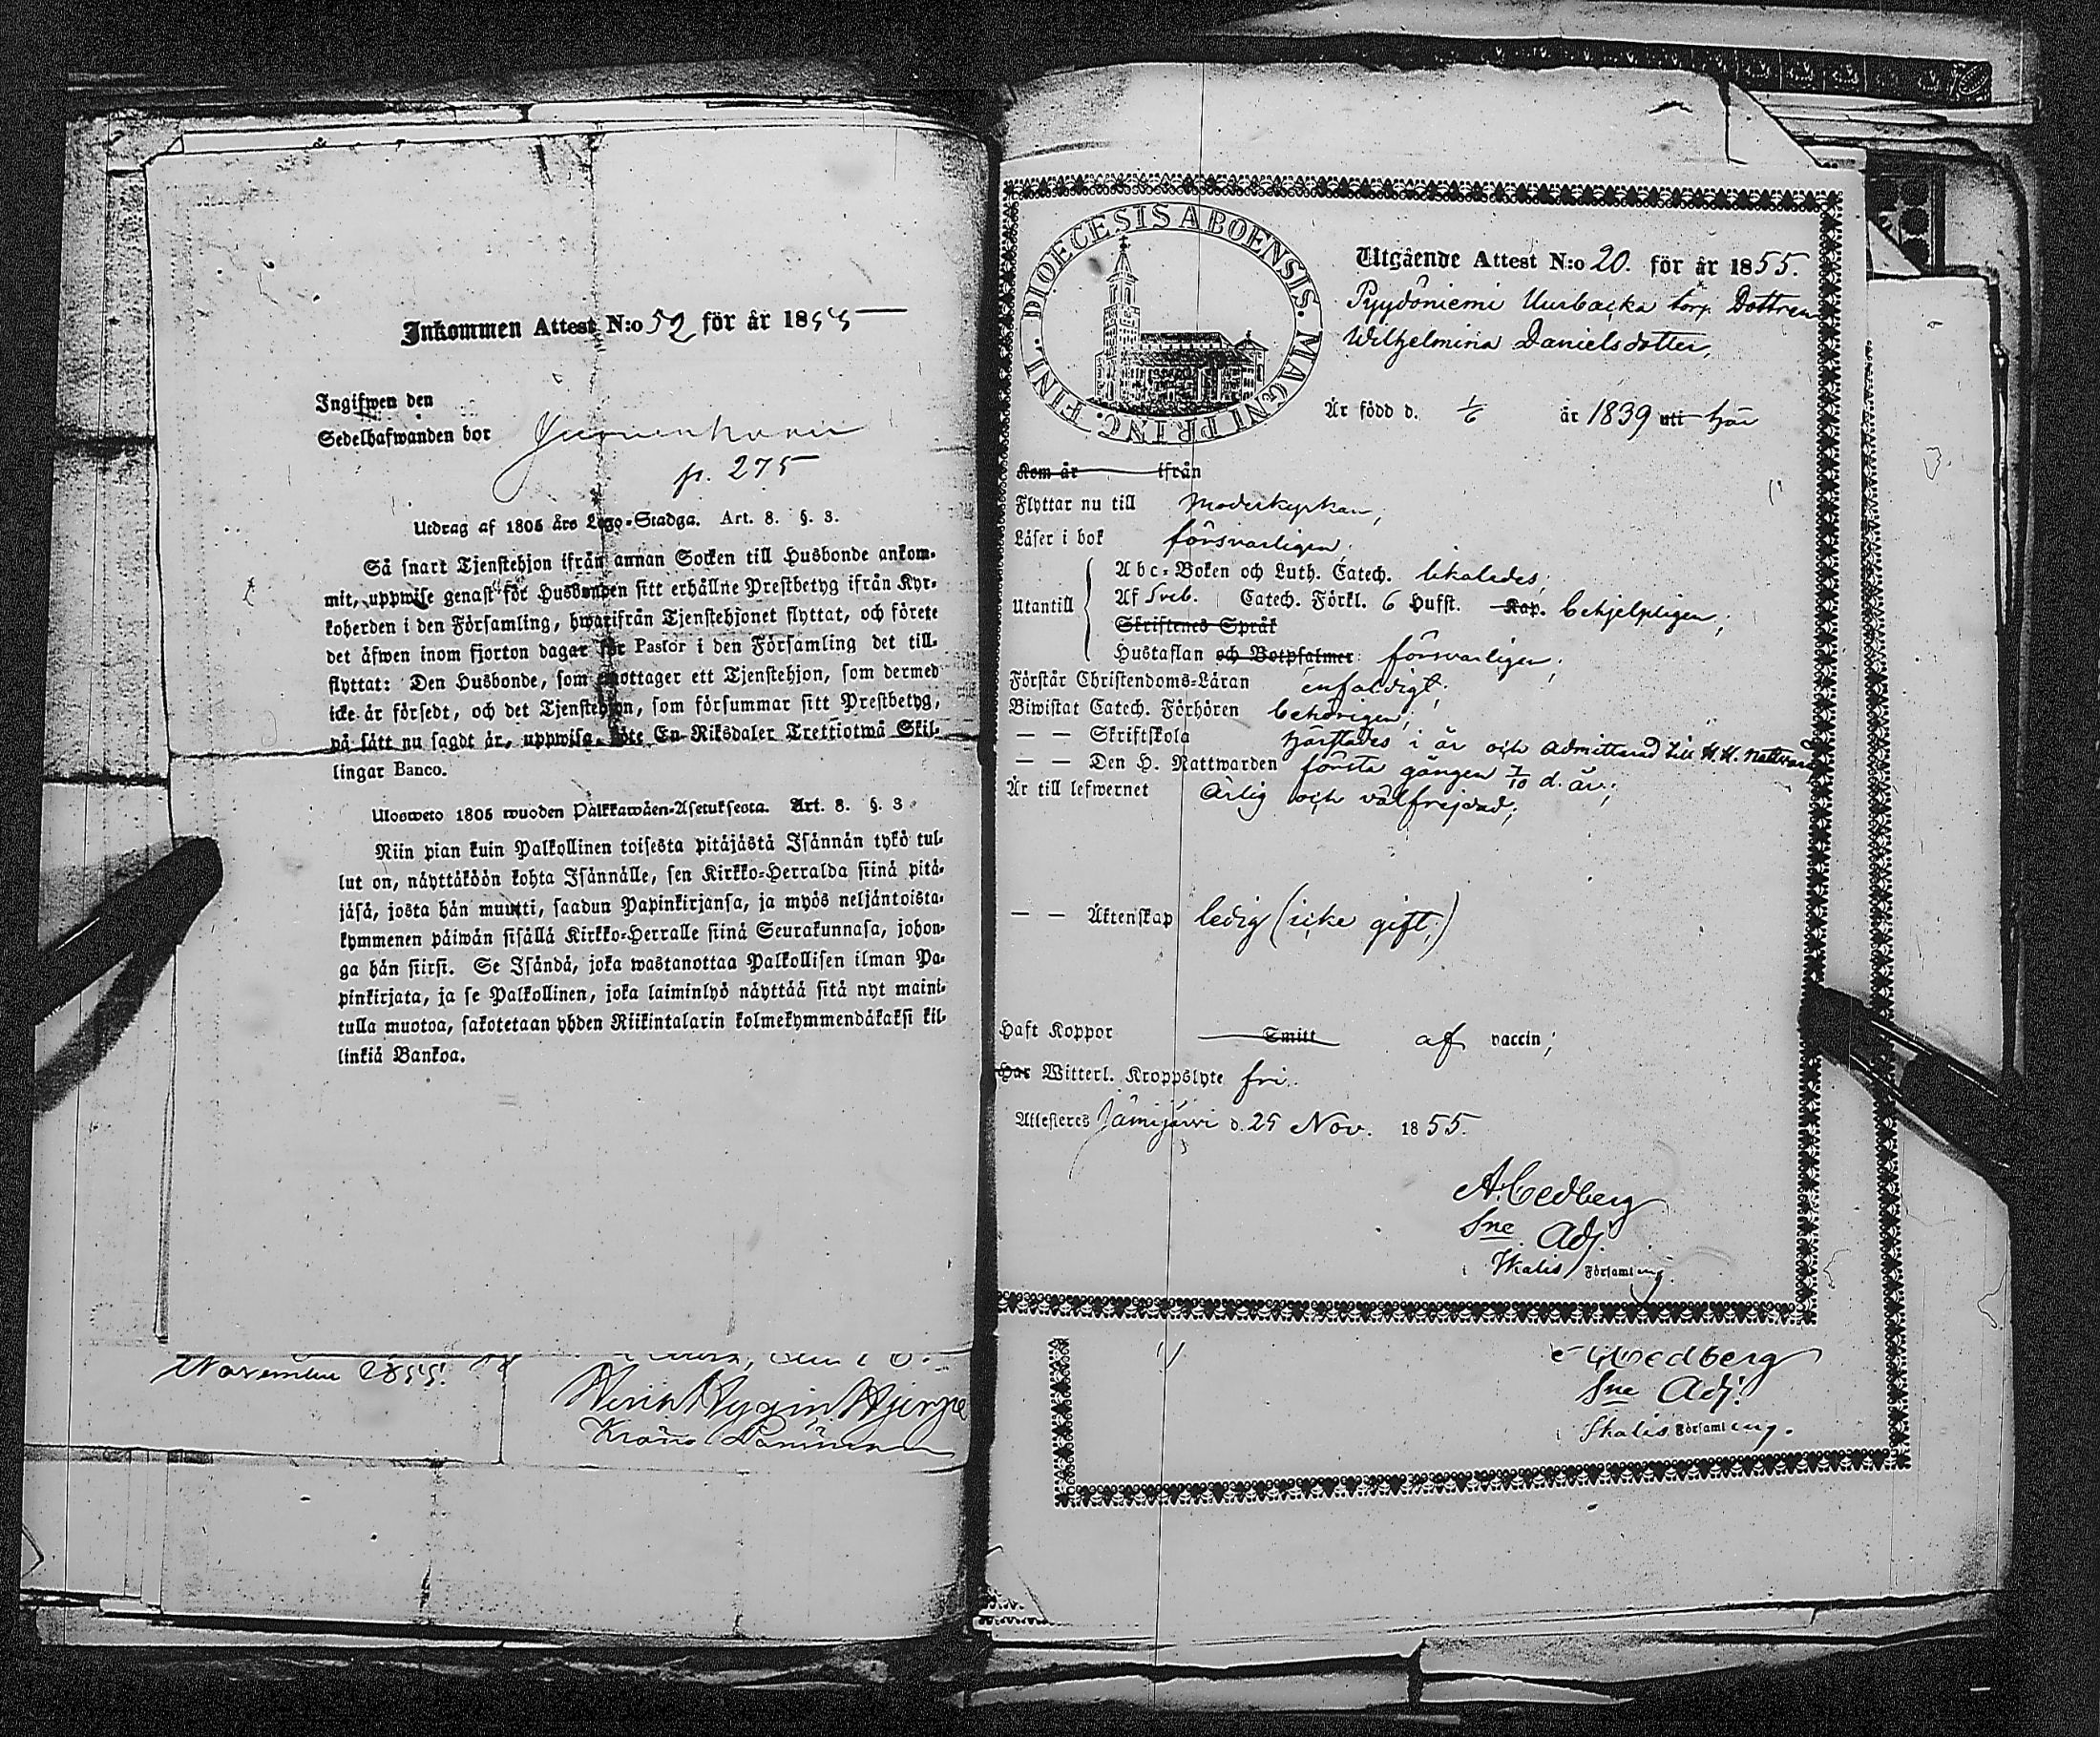 Inkommen Attest N:o 52 för år 1855
Ingifwen den
Sedelhafwanden bor
p. 275
Utdrag af 1805 års Lego-Stadga. Art. 8. §. 3.
Så snart Tjenstehjon ifrån annan Socken till Husbonde ankom-
mit, uppwise genast för Husbonden sitt erhållne Prestbetyg ifrån Kyr-
koherden i den Församling, hwarifrån Tjenstehjonet flyttat, och förete
det äfwen inom fjorton dagar för Pastor i den Församling det till-
flyttat: Den Husbonde, som emottager ett Tjenstehjon, som dermed
icke är försedt, och det Tjenstehjon, som försummar sitt Prestbetyg,
på sätt nu sagdt är, uppwisa, böte En Riksdaler Trettiotwå Skil-
lingar Banco.
Ulosweto 1805 wuoden Palkkawäen-Asetuksesta. Art. 8. §. 3
Niin pian kuin Palkollinen toisesta pitäjästä Isännän tykö tul-
lut on, näyttäköön kohta Isännälle, sen Kirkko-Herralda siinä pitä-
jäsä, josta hän muutti, saadun Papinkirjansa, ja myös neljäntoista-
kymmenen päiwän sisällä Kirkko-Herralle siinä Seurakunnasa, johon-
ga hän siirsi. Se Isändä, joka wastanottaa Palkollisen ilman Pa-
pinkirjata, ja se Palkollinen, joka laiminlyö näyttää sitä nyt maini-
tulla muotoa, sakotetaan yhden Riikintalarin kolmekymmendäkaksi kil-
linkiä Bankoa.
November 1855.
DIOECESIS ABOENSIS. MAGNI PRINC. FINL.
Utgående Attest N:o 20. för år 1855.
Pyydöniemi Uurbacka torp Dottren
Wilhelmina Danielsdotter,
Är född d. 1/6 år 1839 utt här
Kom år ifrån
Flyttar nu till Moderkyrkan,
Läser i bok försvarligen,
Utantill
Abc-Boken och Luth. Catech. likaledes,
Af Sveb. Catech. Förkl. 6 Hufst. Kap. behjelpligen,
Skriftenes Språk
Hustaflan och Botpsalmer försvarligen,
Förstår Christendoms-Läran enfaldigt,
Biwistat Catech. Förhören behörigen,
— — Skriftskola härstädes i år och admitterad till H. H. Nattvard
— — Den H. Nattwarden första gången 7/10 d. år;
Är till lefwernet ärlig och välfrejdad;
— — Äktenskap ledig (icke gift;)
Haft Koppor Smitt af vaccin;
Har Witterl. Kroppslyte fri.
Attesteres Jämijärvi d. 25 Nov. 1855.
A. Cedberg
Sne Adj.
i Ikalis Församling.
Cedberg
Sne Adj.
i Ikalis Församling.